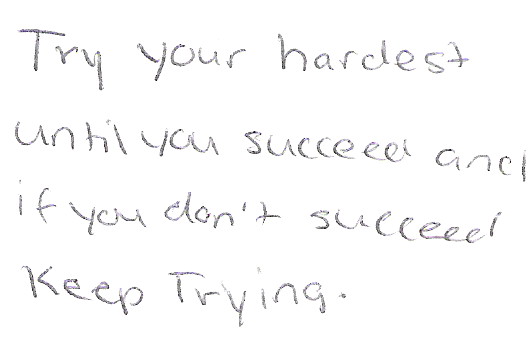 Try your hardest
until you succeed and
if you don't succeed
Keep Trying.